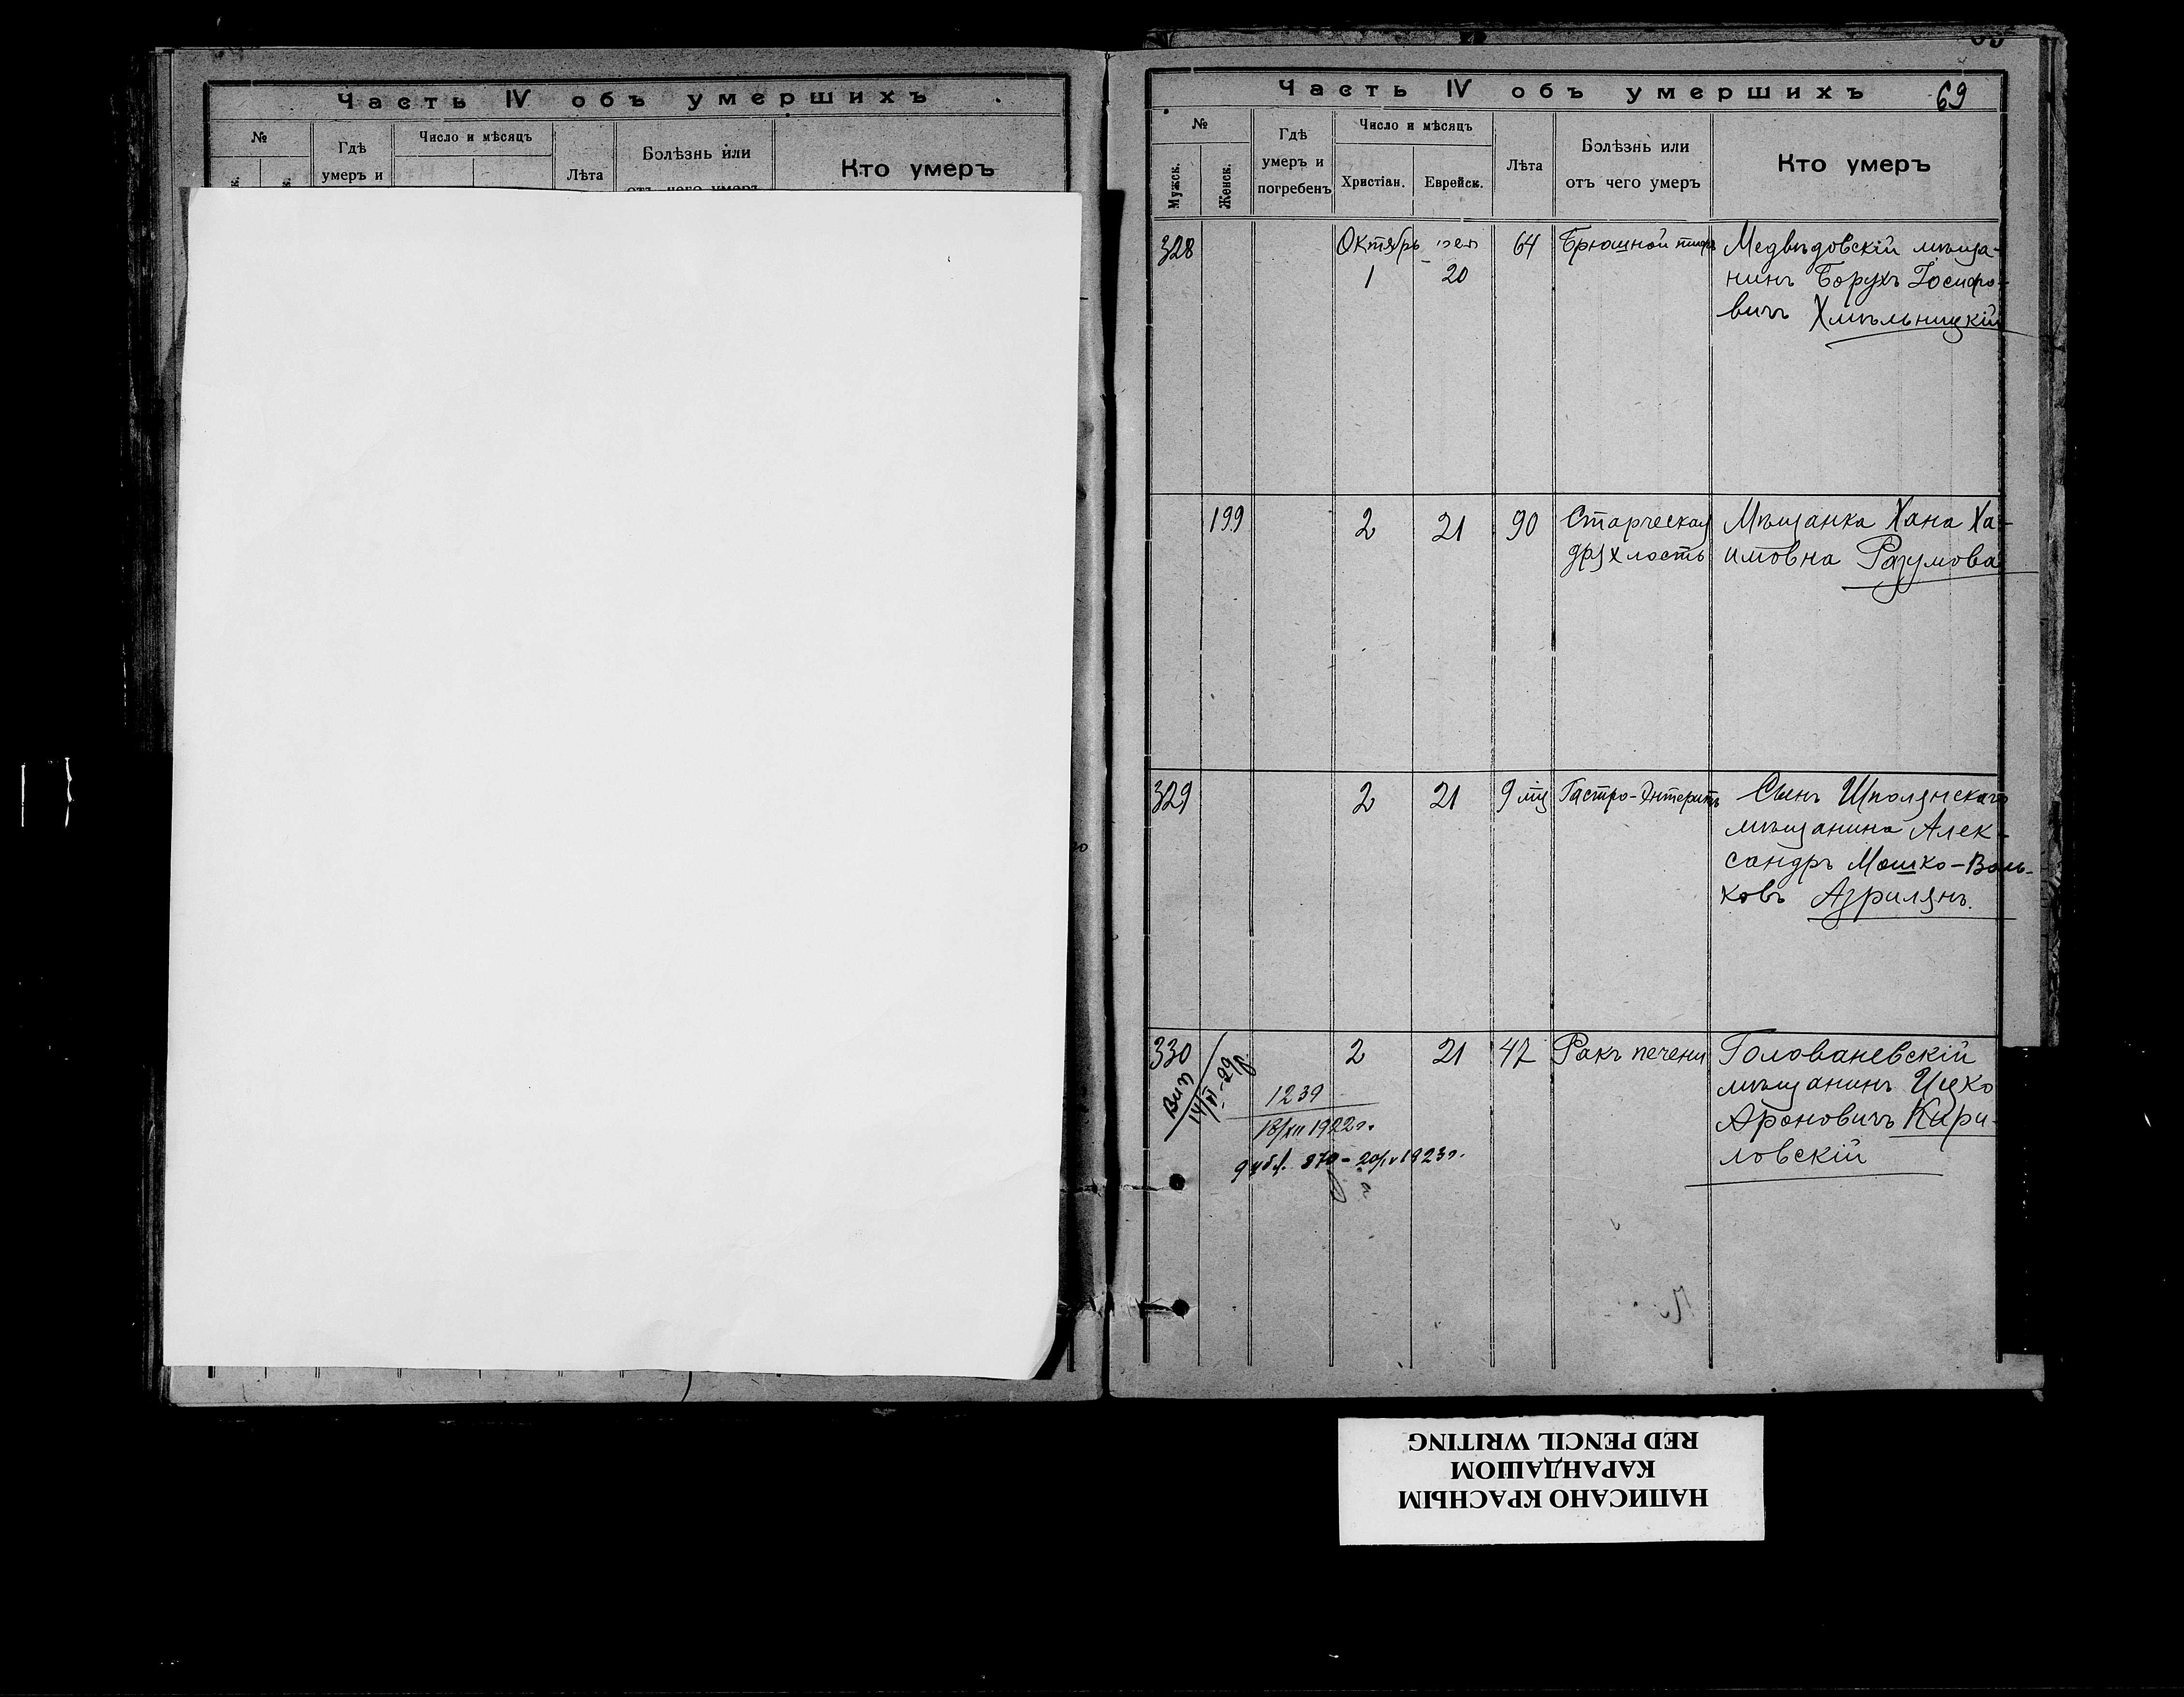 Часть IV объ умершихъ
№
Гдѣ
умеръ и
Число и мѣсяцъ
Лѣта
Болѣзнь или
отъ чего умеръ
Кто умеръ
Часть IV объ умершихъ
69
№
Мужск.
Женск.
Гдѣ
умеръ и
погребенъ
Число и мѣсяцъ
Христіан.
Еврейск.
Лѣта
Болѣзнь или
отъ чего умеръ
Кто умеръ
328
Октябрь
1
20
64
Брюшной тифъ
Медвѣдовскій мѣща-
нинъ Борухъ Іосифо-
вичъ Хмѣльницкій
199
2
21
90
Старческая
дряхлость
Мѣщанка Хана Ха-
имовна Разумова
329
2
21
9 мц
Гастро-Энтеритъ
Сынъ Шполянскаго
мѣщанина Алек-
сандръ Мошко-Воль-
ковъ Азрилянъ.
330
Вип
14/VI-29р
1239
18/XII 1922г.
дубл. 879 - 20/IV 1923г.
2
21
47
Ракъ печени
Голованевскій
мѣщанинъ Ицко
Ароновичъ Кири-
ловскій
НАПИСАНО КРАСНЫМ
КАРАНДАШОМ
RED PENCIL WRITING